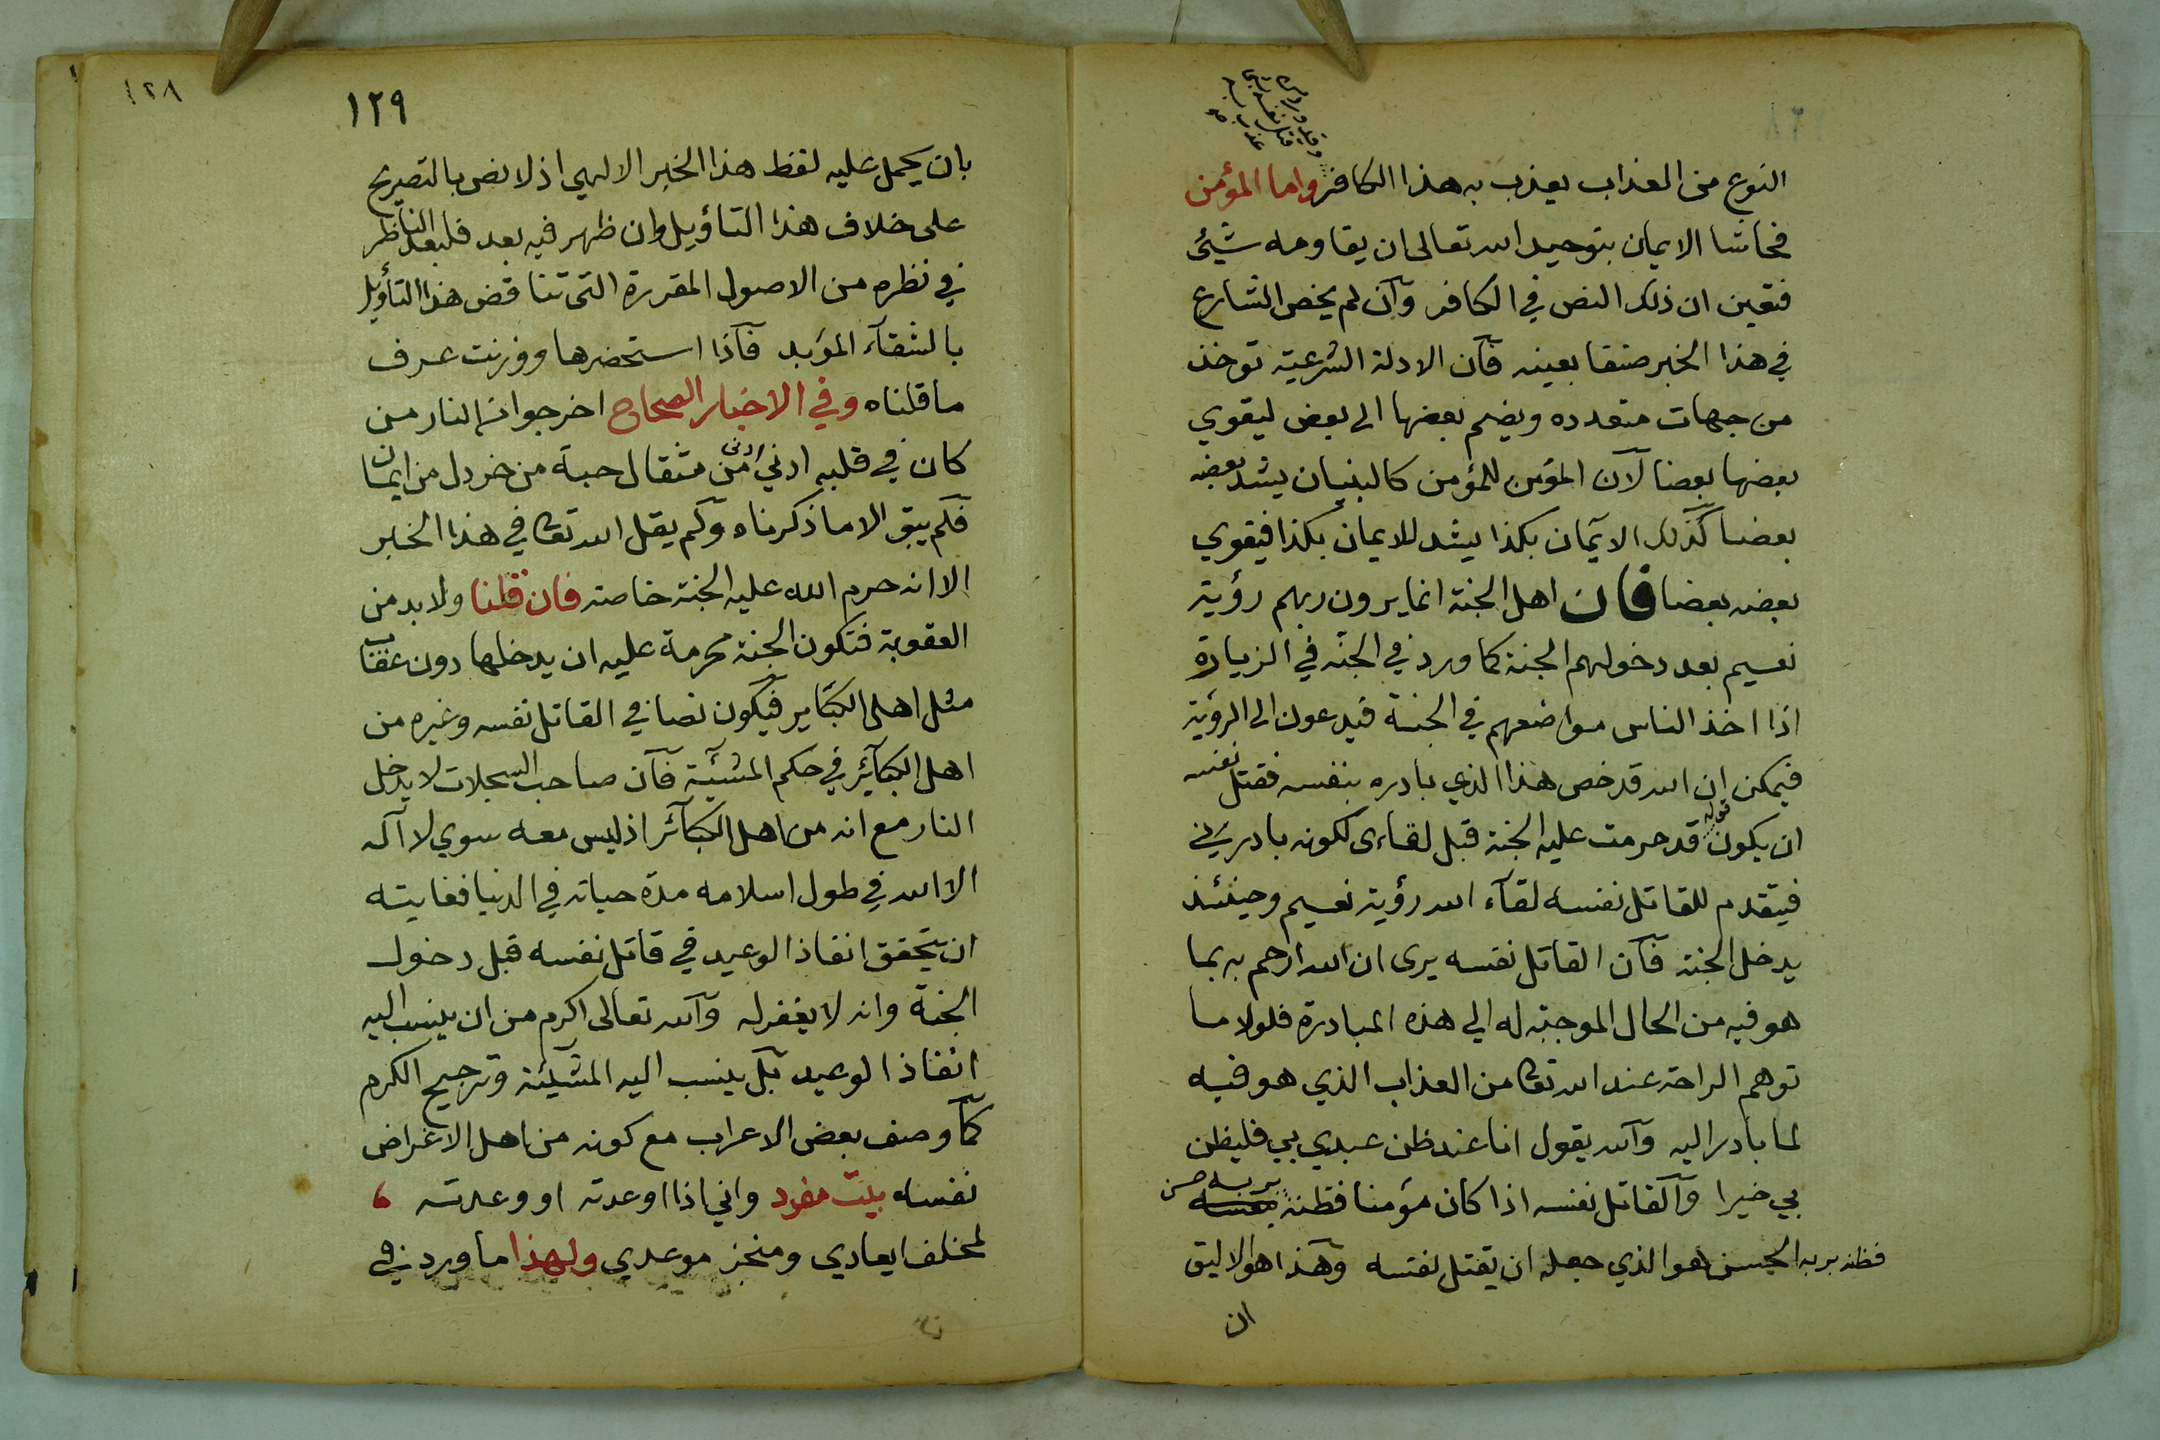 النوع من العذاب يعذب به هذا الكافر واما المؤمن
فحاشا الايمان بتوحيد الله تعالى ان يقاومه شيئ
فتعين ان ذلك النص في الكافر وآن لم يخص الشارع
في هذا الخبر صنفا بعينه فآن الادلة الشرعية توخذ
من جهات متعدده ويضم بعضها الى بعض ليقوي
بعضها بعضا لآن المؤمن للمؤمن كالبنيان يشد بعضه
بعضا كذلك الآيمان بكذا يشد للايمان بكذا فيقوي
بعضه بعضا فان اهل الجنة انما يرون ربهم رؤية
نعيم بعد دخولهم الجنة كما ورد في الجنة في الزيارة
اذا اخذ الناس مواضعهم في الجنة فيدعون الى الرؤية
فيمكن ان الله قد خص هذا الذي بادره بنفسه فقتل نفسه
ان يكون قوله قد حرمت عليه الجنة قبل لقاءى لكونه بادرني
فيتقدم للقاتل نفسه لقآء الله رؤية نعيم وحينئذ
يدخل الجنة فآن القاتل نفسه يرى ان الله ارحم به بما
هو فيه من الحال الموجبة له الي هذه المبادرة فلولا ما
توهم الراحة عند الله تعا من العذاب الذي هو فيه
لما بادر اليه وآلله يقول انا عند ظن عبدي بي فليظن
بي خيرا وآلقاتل نفسه اذا كان مؤمنا فظنه بربه حسن
فظنه بربه الحسن هو الذي جعله ان يقتل نفسه وهذا هو الاليق
ان
١٢٨
١٢٩
بان يحمل عليه لفظ هذا الخبر الالهي اذ لا نص بالتصريح
على خلاف هذا التاؤيل وان ظهر فيه بعد فلبعد الناظر
في نظره من الاصول المقررة التى تناقض هذا التأويل
بالشقآء المؤبد فآذا استحضرها ووزنت عرف
ما قلناه وفي الاخبار الصحاح اخرجوا من النار من
كان في قلبه ادني ادنى من مثقال حبة من خردل من ايمان
فلم يبق الا ما ذكرناه ولم يقل الله تعا في هذا الخبر
الا انه حرم الله عليه الجنة خاصة فان قلنا ولا بد من
العقوبة فتكون الجنة محرمة عليه ان يدخلها دون عقاب
مثل اهل الكبآير فيكون نصا في القاتل نفسه وغيره من
اهل الكبآئر في حكم المشيئة فآن صاحب السجلات لا يدخل
النار مع انه من اهل الكبآئر اذ ليس معه سوي لا آله
الا الله في طول اسلامه مدة حياته في الدنيا فغايته
ان يتحقق انفاذ الوعيد في قاتل نفسه قبل دخول
الجنة وانه لا يغفر له وآلله تعالى اكرم من ان ينسب اليه
انفاذ الوعيد بل ينسب اليه المشيئة وترجيح الكرم
كمآ وصف بعض الاعراب مع كونه من اهل الاغراض
نفسه بيت مفرد واني اذا اوعدته او وعدته ،
لمخلف ايعادي ومنجز موعدي ولهذا ما ورد في